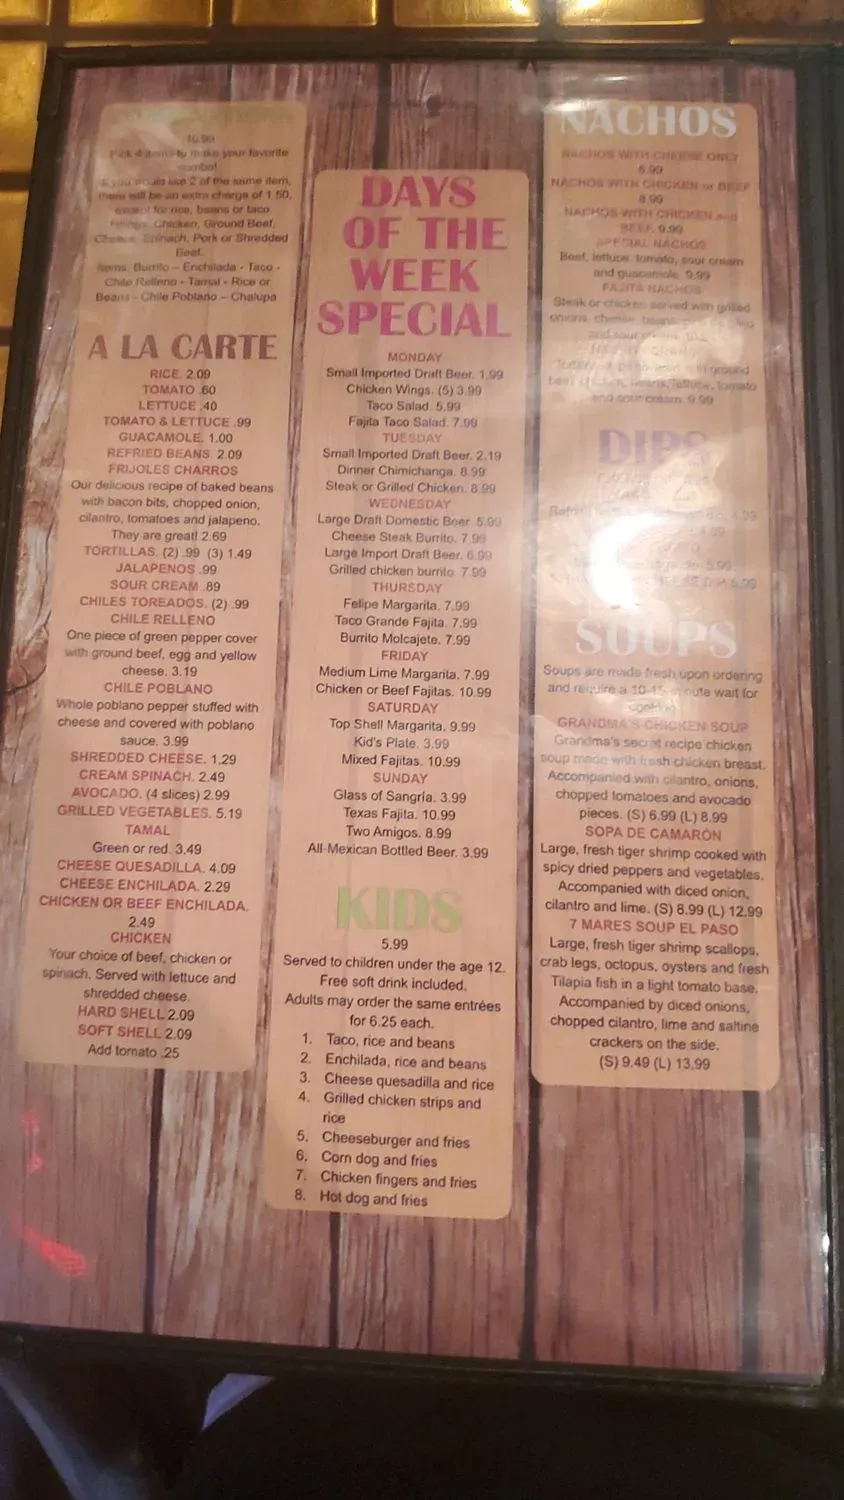 10.99
Pick 4 items to make your favorite
combo!
If you would like 2 of the same item,
there will be an extra charge of 1.50,
except for rice, beans or taco.
Fillings: Chicken, Ground Beef,
Cheese, Spinach, Pork or Shredded
Beef.
Items: Burrito – Enchilada - Taco -
Chile Relleno - Tamal - Rice or
Beans - Chile Poblano – Chalupa
A LA CARTE
RICE. 2.09
TOMATO .60
LETTUCE .40
TOMATO & LETTUCE .99
GUACAMOLE. 1.00
REFRIED BEANS. 2.09
FRIJOLES CHARROS
Our delicious recipe of baked beans
with bacon bits, chopped onion,
cilantro, tomatoes and jalapeno.
They are great! 2.69
TORTILLAS. (2) .99 (3) 1.49
JALAPENOS .99
SOUR CREAM .89
CHILES TOREADOS. (2) .99
CHILE RELLENO
One piece of green pepper cover
with ground beef, egg and yellow
cheese. 3.19
CHILE POBLANO
Whole poblano pepper stuffed with
cheese and covered with poblano
sauce. 3.99
SHREDDED CHEESE. 1.29
CREAM SPINACH. 2.49
AVOCADO. (4 slices) 2.99
GRILLED VEGETABLES. 5.19
TAMAL
Green or red. 3.49
CHEESE QUESADILLA. 4.09
CHEESE ENCHILADA. 2.29
CHICKEN OR BEEF ENCHILADA.
2.49
CHICKEN
Your choice of beef, chicken or
spinach. Served with lettuce and
shredded cheese.
HARD SHELL 2.09
SOFT SHELL 2.09
Add tomato .25
DAYS
OF THE
WEEK
SPECIAL
MONDAY
Small Imported Draft Beer. 1.99
Chicken Wings. (5) 3.99
Taco Salad. 5.99
Fajita Taco Salad. 7.99
TUESDAY
Small Imported Draft Beer. 2.19
Dinner Chimichanga. 8.99
Steak or Grilled Chicken. 8.99
WEDNESDAY
Large Draft Domestic Beer. 5.99
Cheese Steak Burrito. 7.99
Large Import Draft Beer. 6.99
Grilled chicken burrito. 7.99
THURSDAY
Felipe Margarita. 7.99
Taco Grande Fajita. 7.99
Burrito Molcajete. 7.99
FRIDAY
Medium Lime Margarita. 7.99
Chicken or Beef Fajitas. 10.99
SATURDAY
Top Shell Margarita. 9.99
Kid's Plate. 3.99
Mixed Fajitas. 10.99
SUNDAY
Glass of Sangría. 3.99
Texas Fajita. 10.99
Two Amigos. 8.99
All-Mexican Bottled Beer. 3.99
KIDS
5.99
Served to children under the age 12.
Free soft drink included.
Adults may order the same entrées
for 6.25 each.
1. Taco, rice and beans
2. Enchilada, rice and beans
3. Cheese quesadilla and rice
4. Grilled chicken strips and
rice
5. Cheeseburger and fries
6. Corn dog and fries
7. Chicken fingers and fries
8. Hot dog and fries
NACHOS
NACHOS WITH CHEESE ONLY
6.99
NACHOS WITH CHICKEN or BEEF
8.99
NACHOS WITH CHICKEN and
BEEF. 9.99
SPECIAL NACHOS
Beef, lettuce, tomato, sour cream
and guacamole. 9.99
FAJITA NACHOS
Steak or chicken served with grilled
onions, cheese, beans,
and sour cream.
ground
beef, chicken, beans, lettuce, tomato
and sour cream. 9.99
DIPS
5.99
SOUPS
Soups are made fresh upon ordering
and require a 10-15 minute wait for
cooking.
GRANDMA'S CHICKEN SOUP
Grandma's secret recipe chicken
soup made with fresh chicken breast.
Accompanied with cilantro, onions,
chopped tomatoes and avocado
pieces. (S) 6.99 (L) 8.99
SOPA DE CAMARÓN
Large, fresh tiger shrimp cooked with
spicy dried peppers and vegetables.
Accompanied with diced onion,
cilantro and lime. (S) 8.99 (L) 12.99
7 MARES SOUP EL PASO
Large, fresh tiger shrimp scallops,
crab legs, octopus, oysters and fresh
Tilapia fish in a light tomato base.
Accompanied by diced onions,
chopped cilantro, lime and saltine
crackers on the side.
(S) 9.49 (L) 13.99